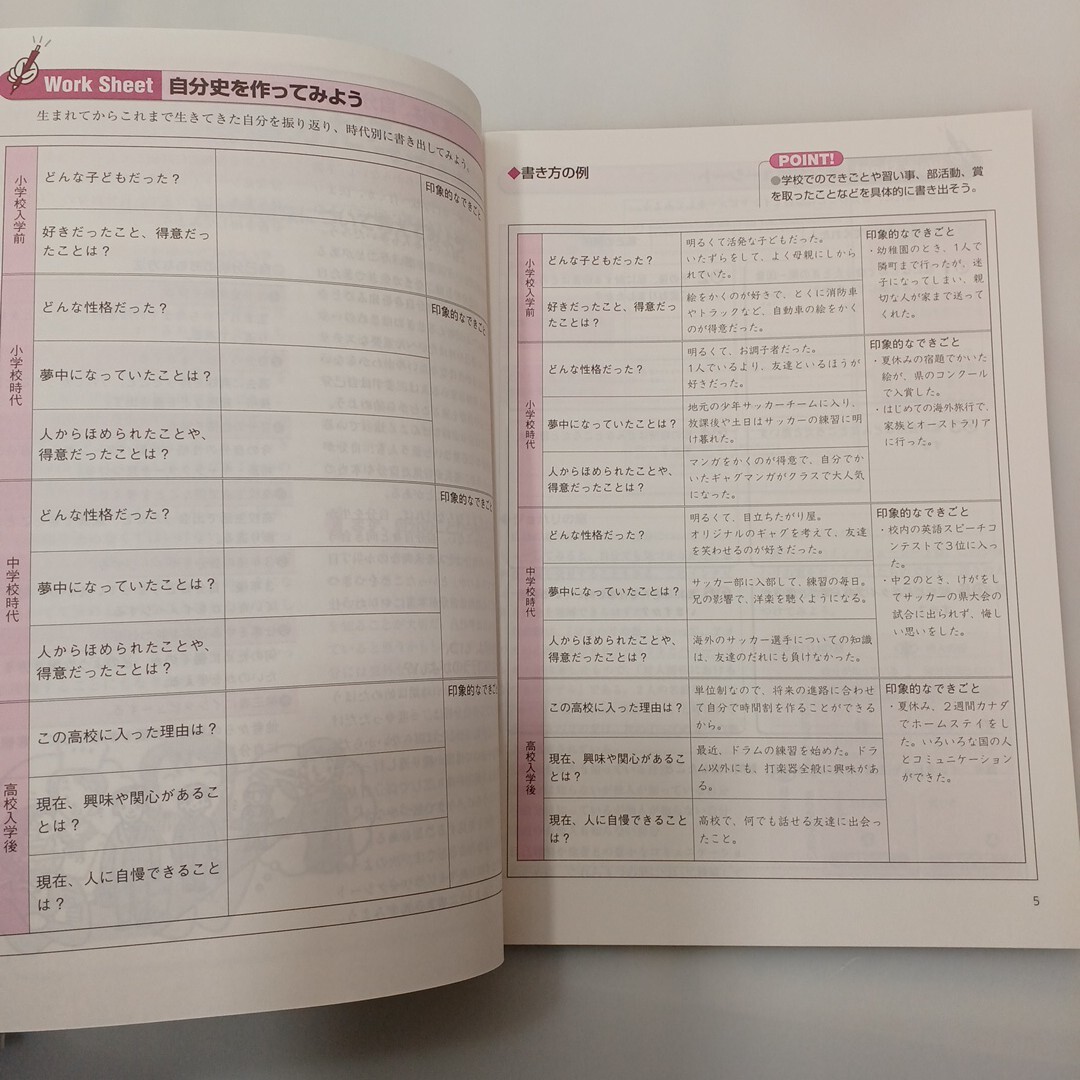 Work Sheet 自分史を作ってみよう
生まれてからこれまで生きてきた自分を振り返り、時代別に書き出してみよう。
小学校入学前
どんな子どもだった？
印象的なできごと
好きだったこと、得意だっ
たことは？
小学校時代
どんな性格だった？
印象的なできごと
夢中になっていたことは？
人からほめられたことや、
得意だったことは？
中学校時代
どんな性格だった？
印象的なできごと
夢中になっていたことは？
人からほめられたことや、
得意だったことは？
高校入学後
この高校に入った理由は？
印象的なできごと
現在、興味や関心があるこ
とは？
現在、人に自慢できること
は？
◆書き方の例
POINT!
●学校でのできごとや習い事、部活動、賞
を取ったことなどを具体的に書き出そう。
小学校入学前
どんな子どもだった？
明るくて活発な子どもだった。
いたずらをして、よく母親にしから
れていた。
好きだったこと、得意だっ
たことは？
絵をかくのが好きで、とくに消防車
やトラックなど、自動車の絵をかく
のが得意だった。
印象的なできごと
・幼稚園のとき、1人で
隣町まで行ったが、迷
子になってしまい、親
切な人が家まで送って
くれた。
小学校時代
どんな性格だった？
明るくて、お調子者だった。
1人でいるより、友達といるほうが
好きだった。
夢中になっていたことは？
地元の少年サッカーチームに入り、
放課後や土日はサッカーの練習に明
け暮れた。
人からほめられたことや、
得意だったことは？
マンガをかくのが得意で、自分でか
いたギャグマンガがクラスで大人気
になった。
印象的なできごと
・夏休みの宿題でかいた
絵が、県のコンクール
で入賞した。
・はじめての海外旅行で、
家族とオーストラリア
に行った。
中学校時代
どんな性格だった？
明るくて、目立ちたがり屋。
オリジナルのギャグを考えて、友達
を笑わせるのが好きだった。
夢中になっていたことは？
サッカー部に入部して、練習の毎日。
兄の影響で、洋楽を聴くようになる。
人からほめられたことや、
得意だったことは？
海外のサッカー選手についての知識
は、友達のだれにも負けなかった。
印象的なできごと
・校内の英語スピーチコ
ンテストで3位に入っ
た。
・中2のとき、けがをし
てサッカーの県大会の
試合に出られず、悔し
い思いをした。
高校入学後
この高校に入った理由は？
単位制なので、将来の進路に合わせ
て自分で時間割を作ることができる
から。
現在、興味や関心があるこ
とは？
最近、ドラムの練習を始めた。ドラ
ム以外にも、打楽器全般に興味があ
る。
現在、人に自慢できること
は？
高校で、何でも話せる友達に出会っ
たこと。
印象的なできごと
・夏休み、2週間カナダ
でホームステイをし
た。いろいろな国の人
とコミュニケーション
ができた。
5